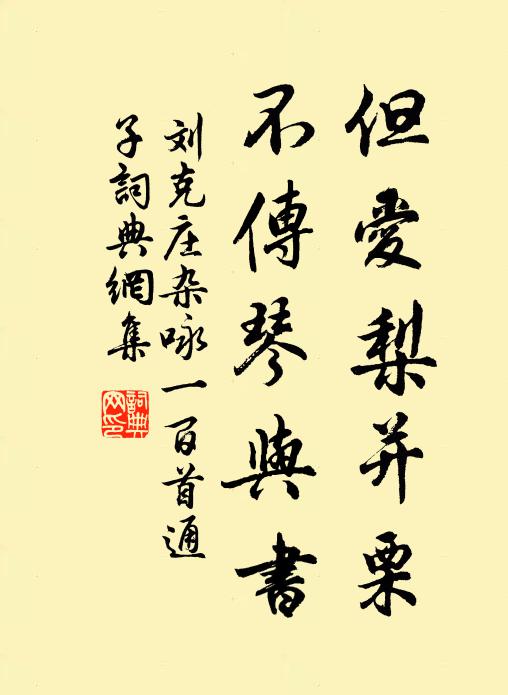 但愛梨并栗
不傳琴與書
刘克庄杂咏一百首通
子詞典網集
詞典網印